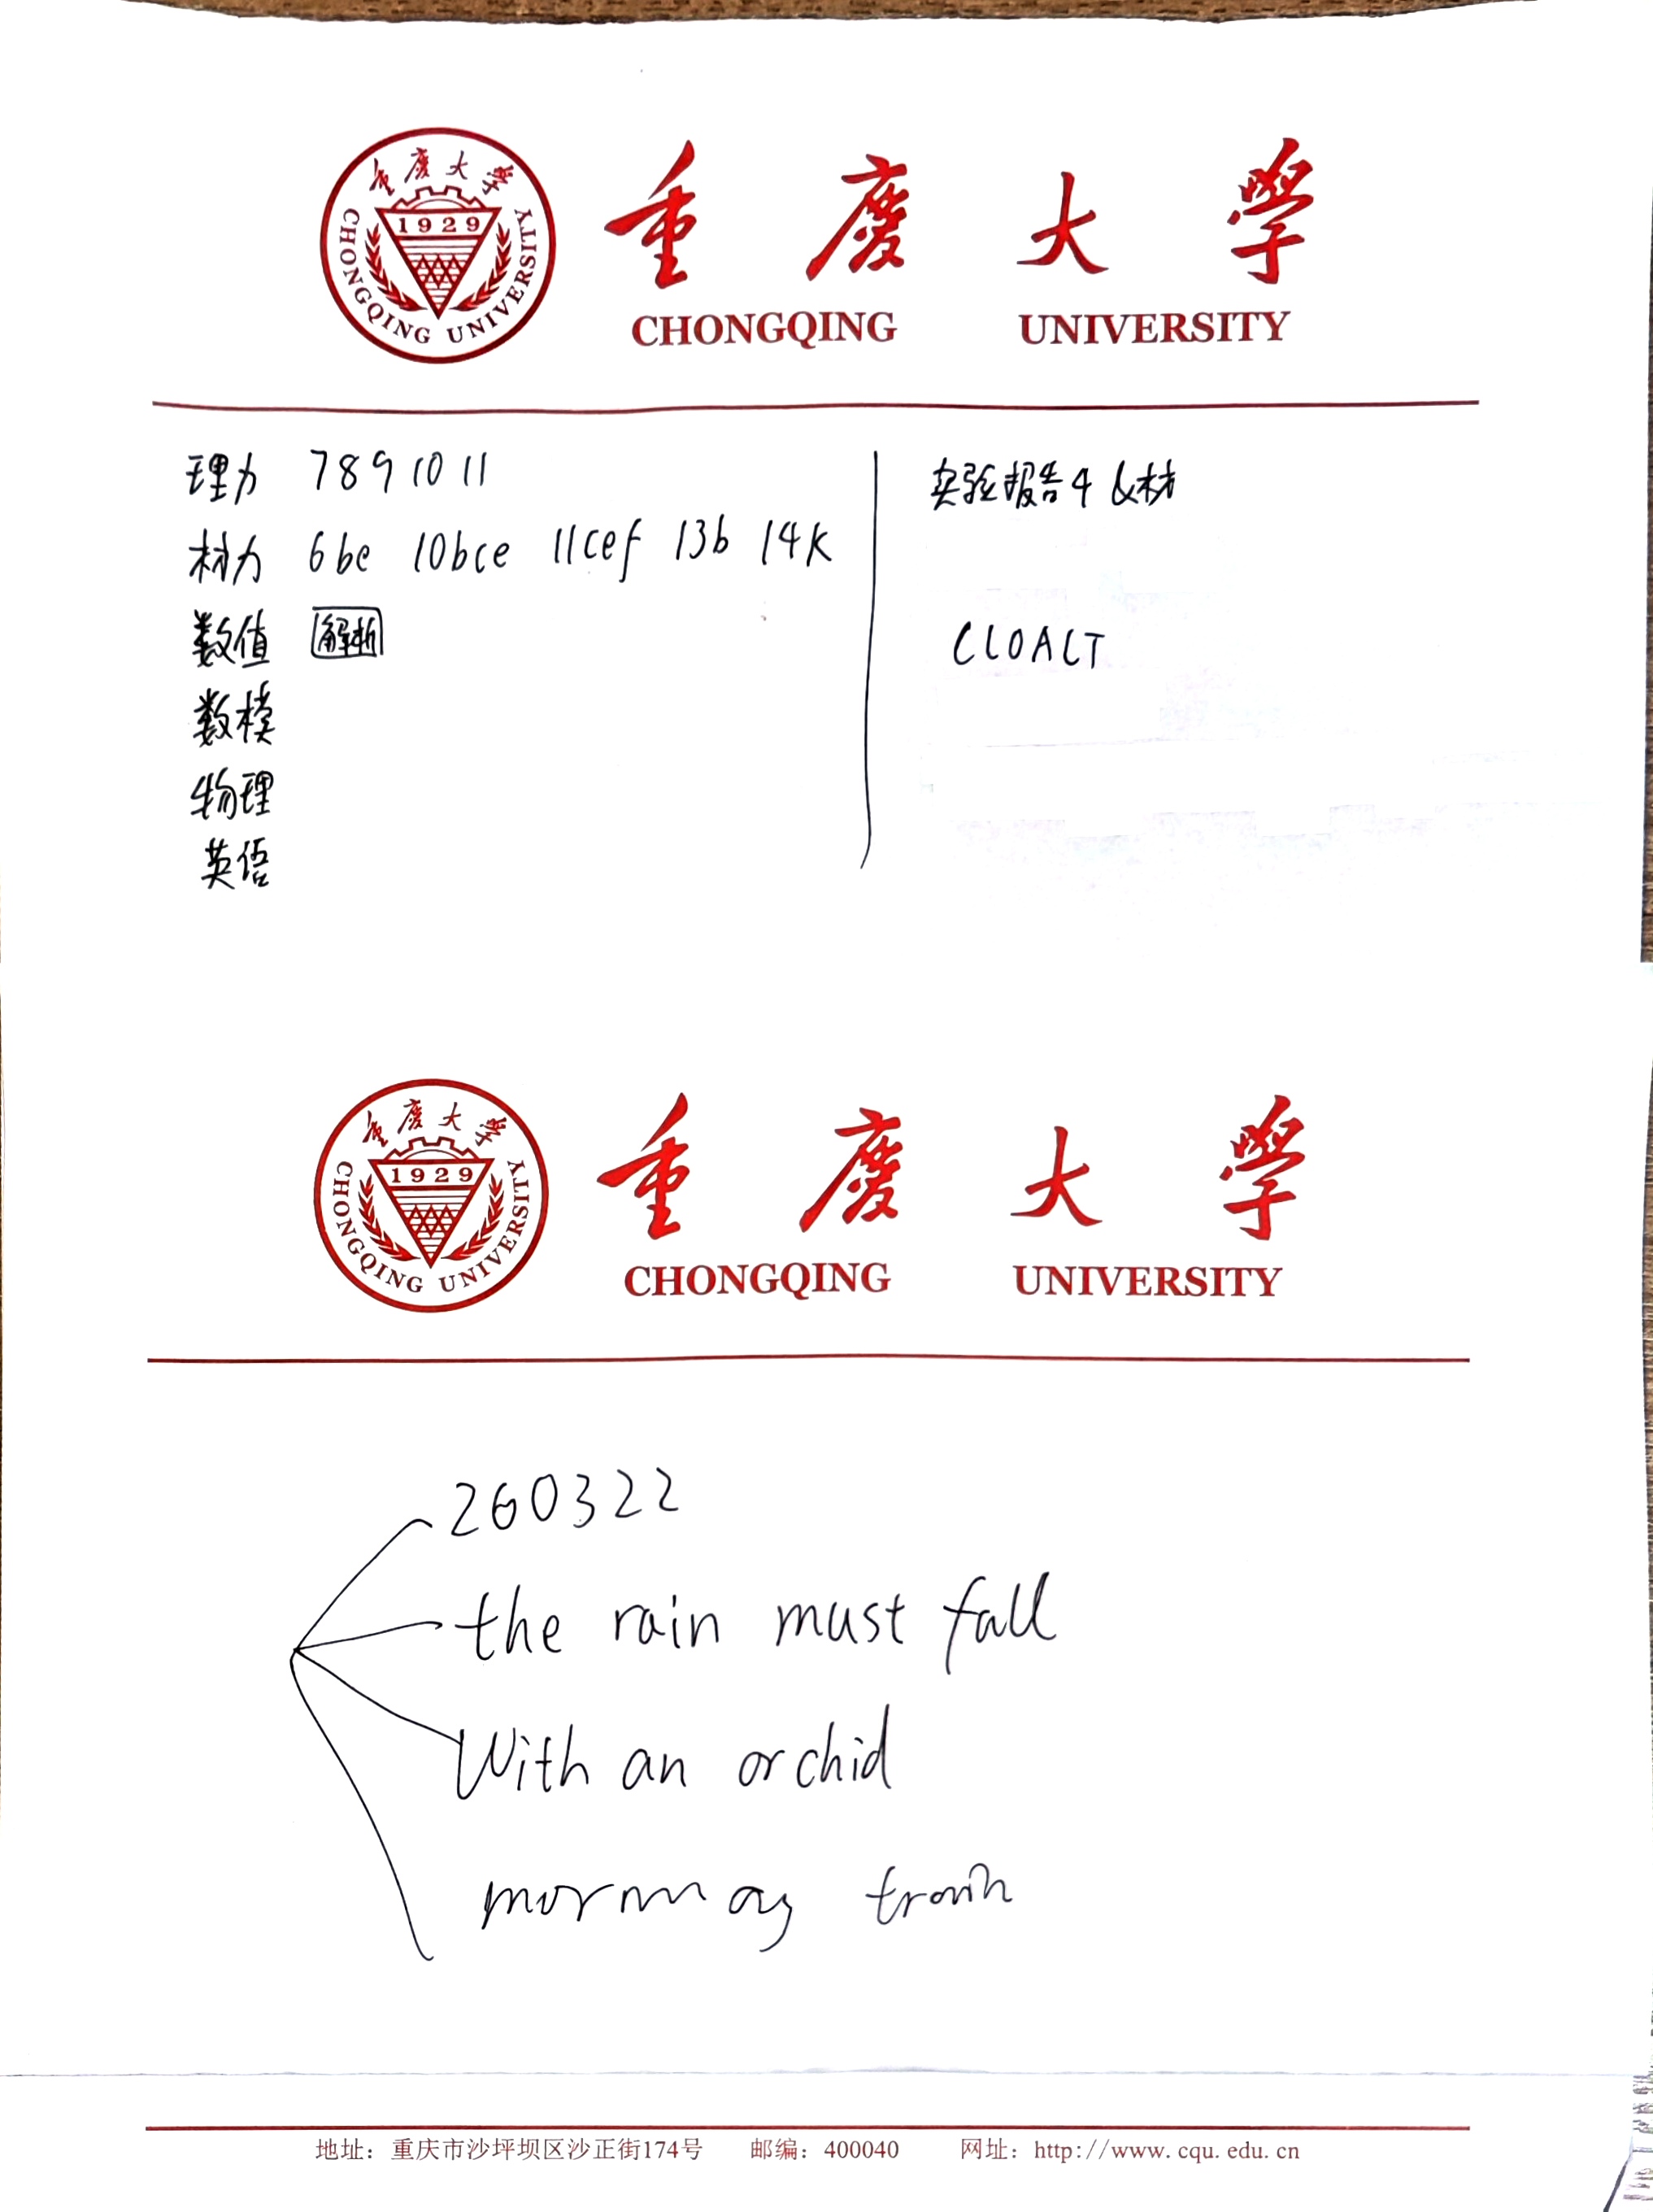 重庆大学
1929
CHONGQING UNIVERSITY
重慶大學
CHONGQING UNIVERSITY
理力 7 8 9 10 11
材力 6be 10bce 11cef 13b 14k
数值 解析
数模
物理
英语
实验报告4 &材
CLOACT
重慶大學
1929
CHONGQING UNIVERSITY
重慶大學
CHONGQING UNIVERSITY
260322
the rain must fall
With an orchid
地址：重庆市沙坪坝区沙正街174号 邮编：400040 网址：http://www.cqu.edu.cn